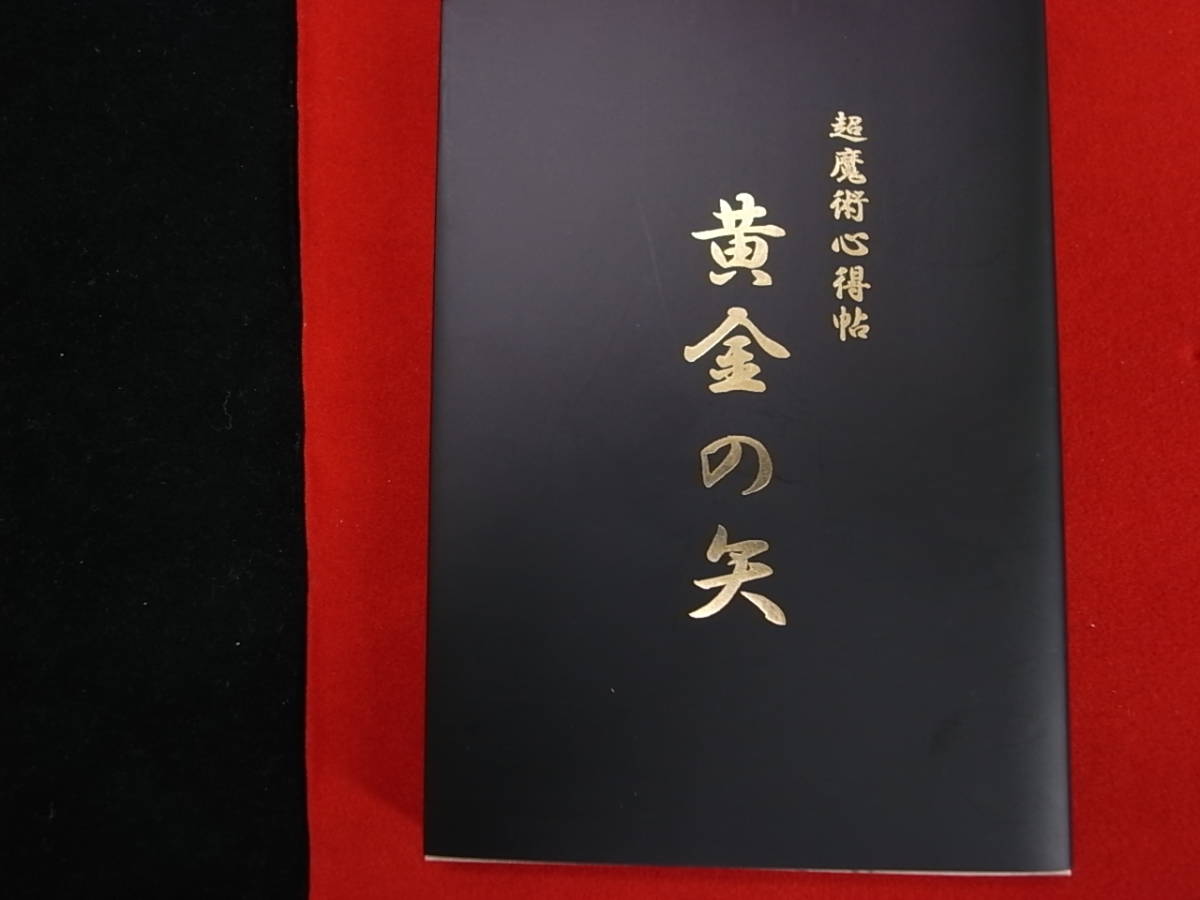 超魔術心得帖
黄金の矢